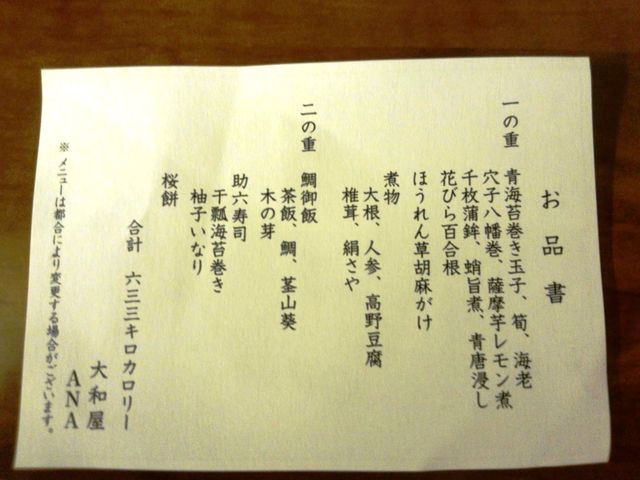 お品書
一の重 青海苔巻き玉子、筍、海老
穴子八幡巻、薩摩芋レモン煮
千枚蒲鉾、蛸旨煮、青唐浸し
花びら百合根
ほうれん草胡麻がけ
煮物
大根、人参、高野豆腐
椎茸、絹さや
二の重 鯛御飯
茶飯、鯛、茎山葵
木の芽
助六寿司
干瓢海苔巻き
柚子いなり
桜餅
合計 六三三キロカロリー
大和屋
ANA
※メニューは都合により変更する場合がございます。